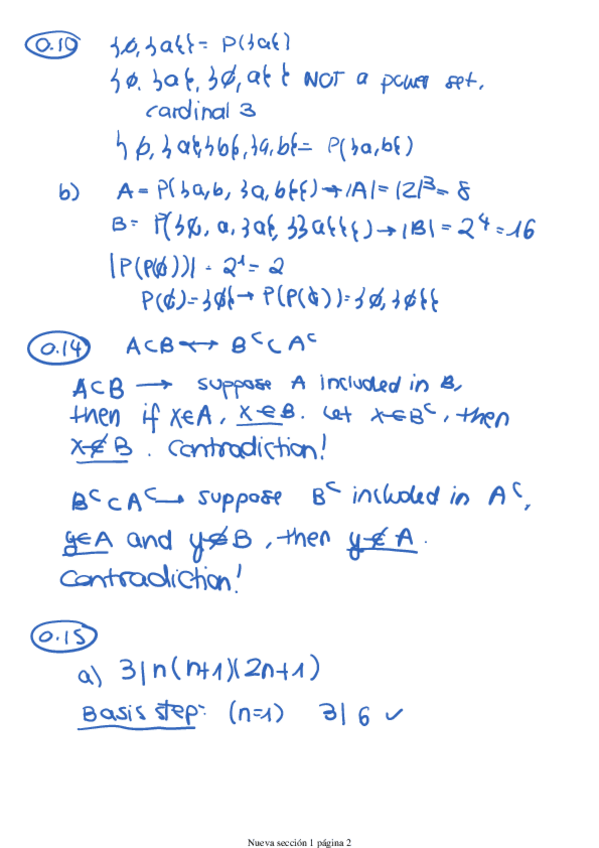 0.10 {∅, {a}} = P({a})
{∅, {a}, {∅, a}} NOT a power set,
cardinal 3
{∅, {a}, {b}, {a, b}} = P({a, b})
b) A = P({a, b, {a, b}}) → |A| = |2|³ = 8
B = P({∅, a, {a}, {{a}}}) → |B| = 2⁴ = 16
|P(P(∅))| = 2¹ = 2
P(∅) = {∅} → P(P(∅)) = {∅, {∅}}
0.14 A⊂B ↔ Bᶜ⊂Aᶜ
A⊂B → suppose A included in B,
then if x∈A, x∈B. Let x∈Bᶜ, then
x∉B. Contradiction!
Bᶜ⊂Aᶜ → suppose Bᶜ included in Aᶜ,
y∈A and y∉B, then y∉A.
Contradiction!
0.15
a) 3|n(n+1)(2n+1)
Basis step: (n=1) 3|6 ✓
Nueva sección 1 página 2